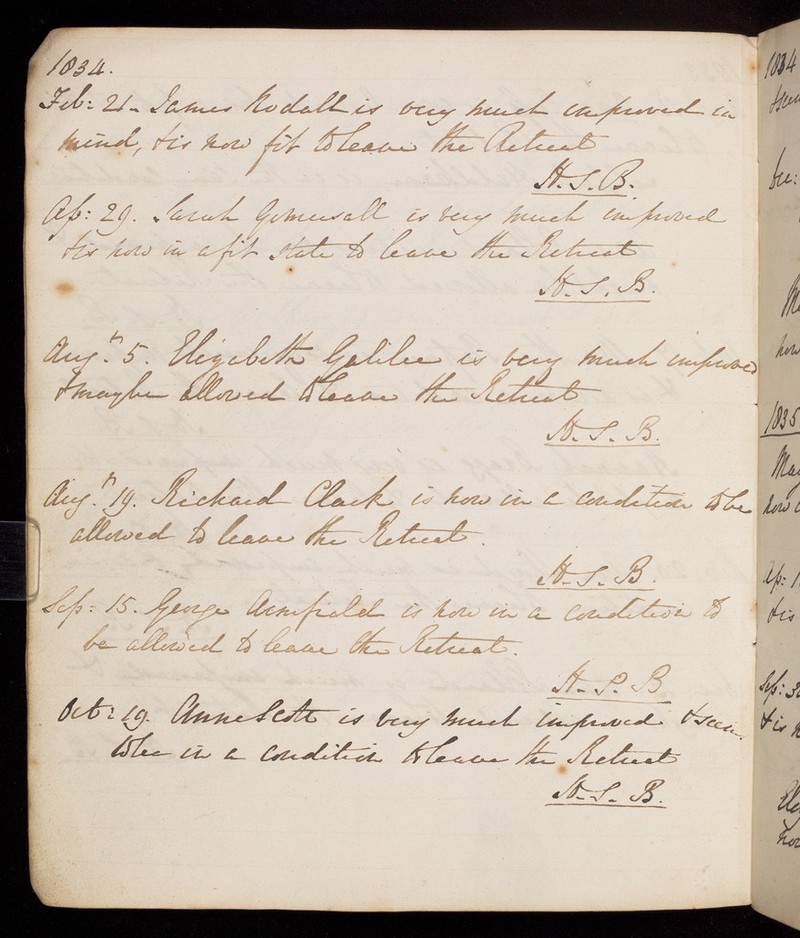 1834.
Feb: 21 - James Nodall is very much improved in
mind, & is now fit to leave the Retreat
H. S. B.
Ap: 29. Sarah Gomersall is very much improved
& is now in a fit state to leave the Retreat
H. S. B.
Augt. 5. Elizabeth Galilee is very much improved
& may be allowed to leave the Retreat
H. S. B.
Augt. 19. Richard Clark is now in a condition to be
allowed to leave the Retreat.
H. S. B.
Sep: 15. George Armfield is now in a condition to
be allowed to leave the Retreat.
H. S. B
Oct: 19. Anne Scott is very much improved & seems
to be in a condition to leave the Retreat
H. S. B.
1834
& seem
Dec:
now
1835
May
now
Ap: 1
& is
Sep: 3
& is